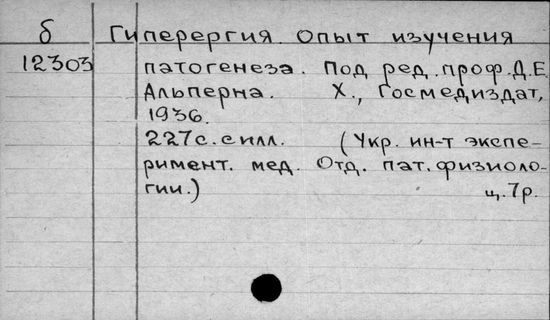 б Гиперергия. Опыт изучения
12303 патогенеза. Под ред. проф. Д.Е.
Альперна. Х., Госмедиздат,
1936.
227с. с илл. (Укр. ин-т экспе-
римент. мед. Отд. пат. физиоло-
гии.) ц. 7р.